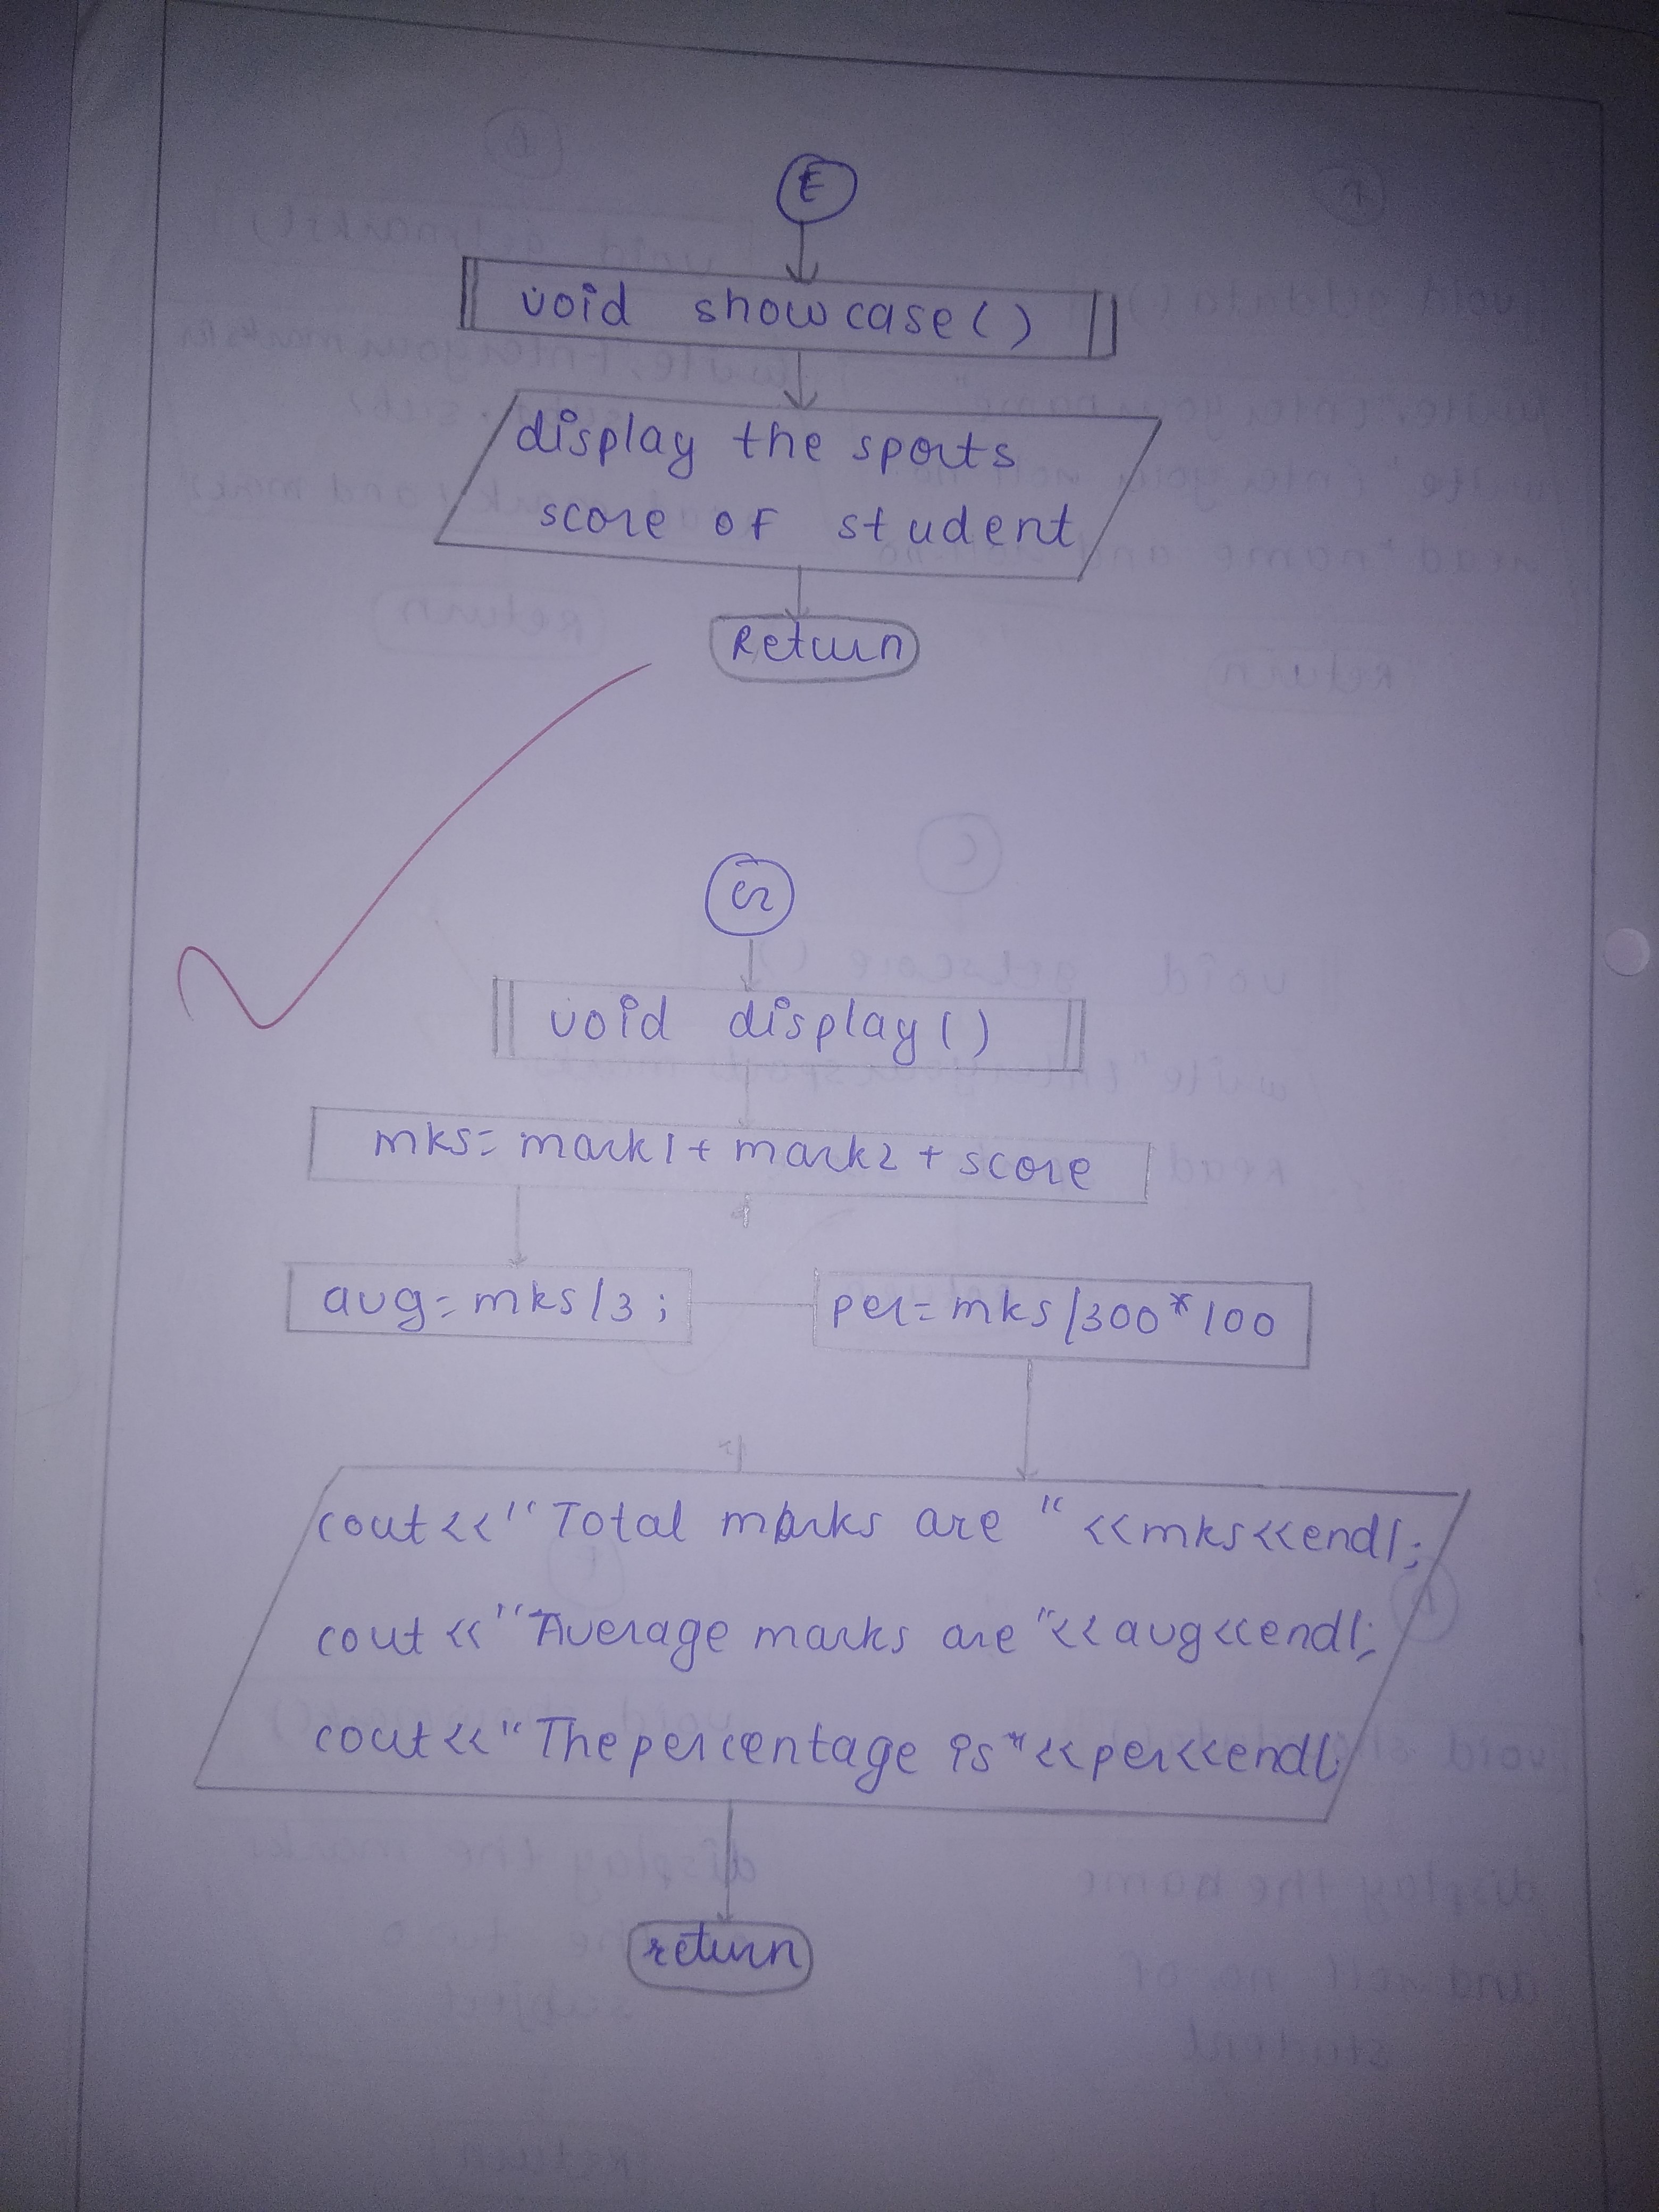 E
void showcase()
display the sports
score of student
Return
G
void display()
mks= mark1+ mark2 + score
avg= mks/3;
per= mks/300*100
cout<<"Total marks are "<<mks<<endl;
cout<<"Average marks are"<<avg<<endl;
cout<<"The percentage is"<<per<<endl;
return